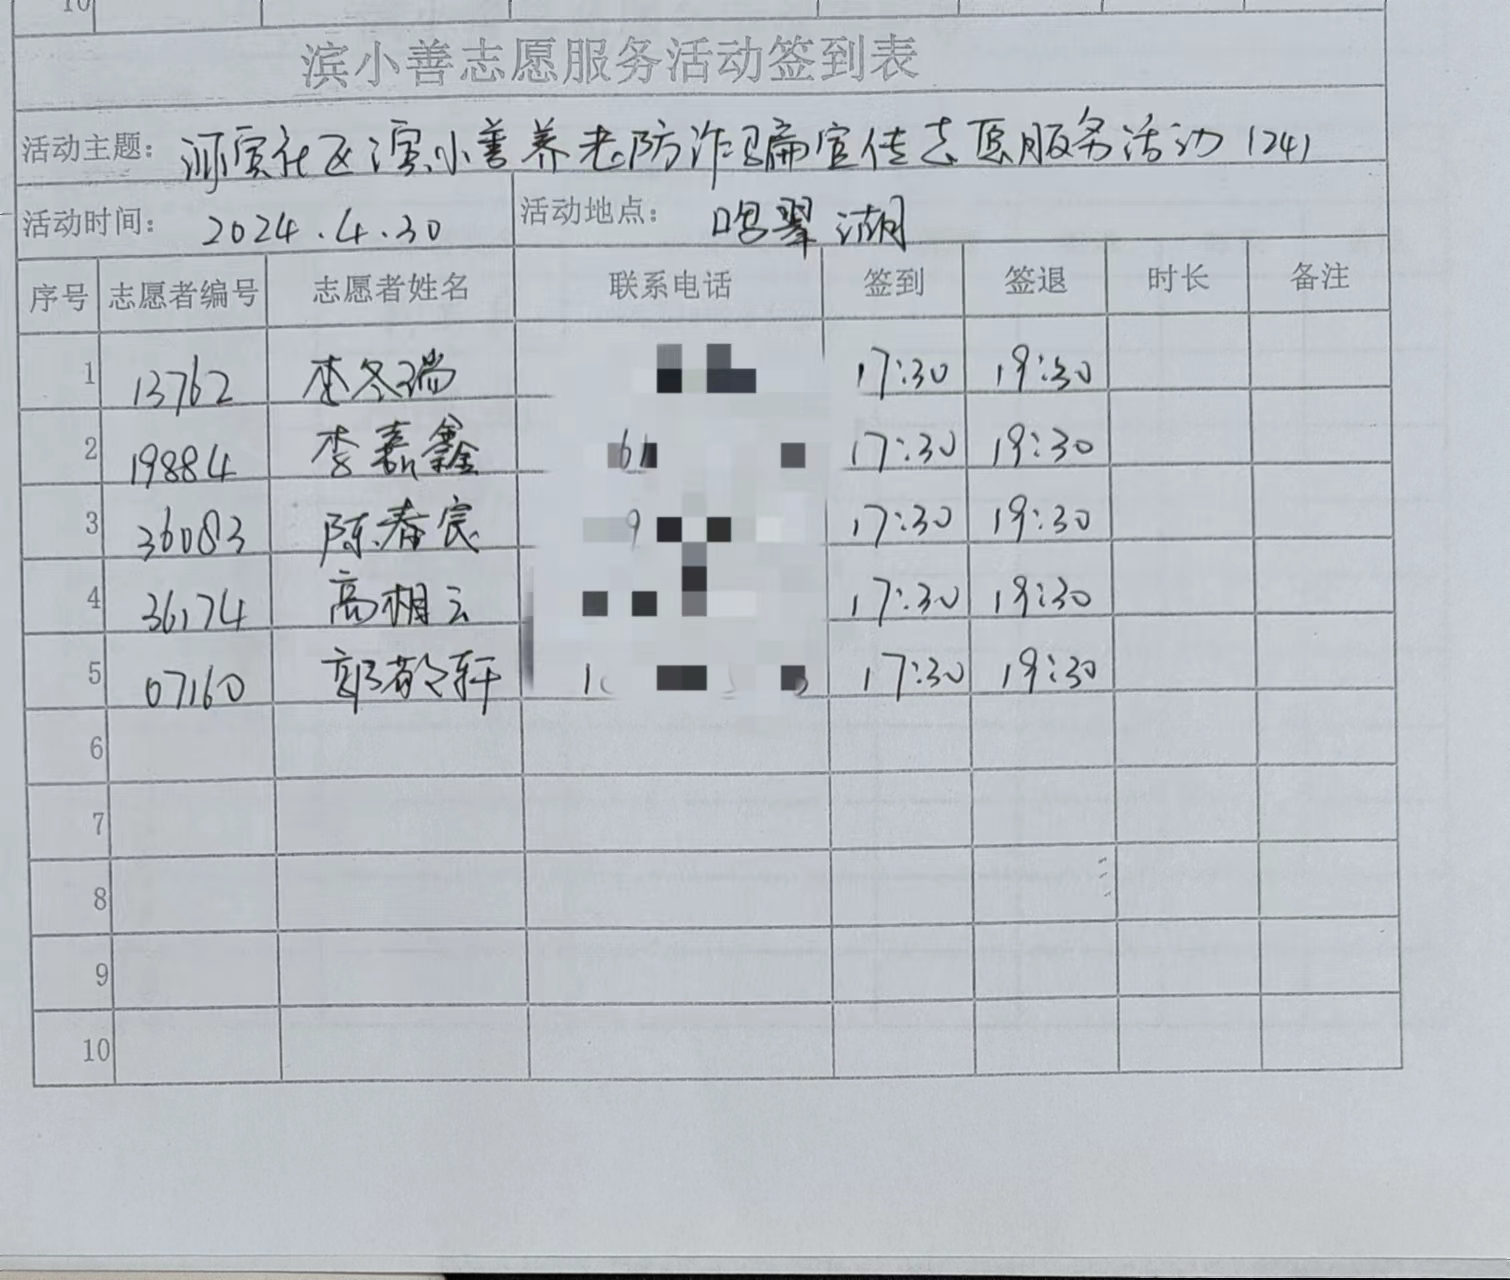 10
滨小善志愿服务活动签到表
活动主题： 河滨社区滨小善养老防诈骗宣传志愿服务活动(24)
活动时间： 2024.4.30 活动地点： 鸣翠湖
序号 志愿者编号 志愿者姓名 联系电话 签到 签退 时长 备注
1 13762 李冬瑞 17:30 19:30
2 19884 李嘉鑫 61 17:30 19:30
3 36083 陈春宸 9 17:30 19:30
4 36174 高相云 17:30 19:30
5 07160 郭 轩 1 17:30 19:30
6
7
8
9
10